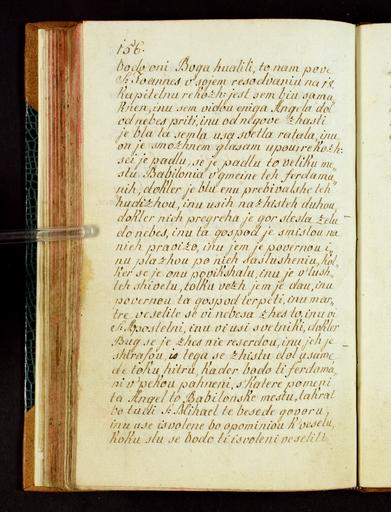 156.
bodo oni Boga hualili, to nam pove
S: Joannes v sojem resodvaniu na 18.
Kapitelnu rekozh: jest sem biu sama
knen, inu sem vidou eniga Angela dol
od nebes priti, inu od negove zhasti
je bla ta semla usa svetla ratala, inu
on je smozhnem glasam upou rekozh:
sei je padlu, se je padlu to veliku me,
stu Babilonia v gmeine teh ferdama,
nih, dokler je blu enu prebivalshe teh
hudizhou, inu usih nazhisteh duhou,
dokler nieh pregreha je gor slesla zelu
do nebes, inu ta gospod je smislou na
nieh pravizo, inu jem je povernou i,
nu plazhou po nieh saslusheniu, kol,
ker se je onu povikshalu, inu je v'lush,
teh shivelu, tolku vozh jem je dau, inu
povernou ta gospod terpeti, inu mar,
tre veselite se vi nebesa zhes to, inu vi
S: Aposteltni, inu vi usi svetniki, dokler
Bug se je zhes nie reserdou, inu jeh je
shtrafou, is tega se zhistu dol usame,
de toku hitru, kader bodo ti ferdama,
ni v'pekou pahneni, skatere pomeni
ta Angel to Babilonske mestu, takrat
bo tudi S: Mihael te besede govoru,
inu use isvolene bo opominiou k'veselu,
koku slu se bodo ti isvoleni veselili